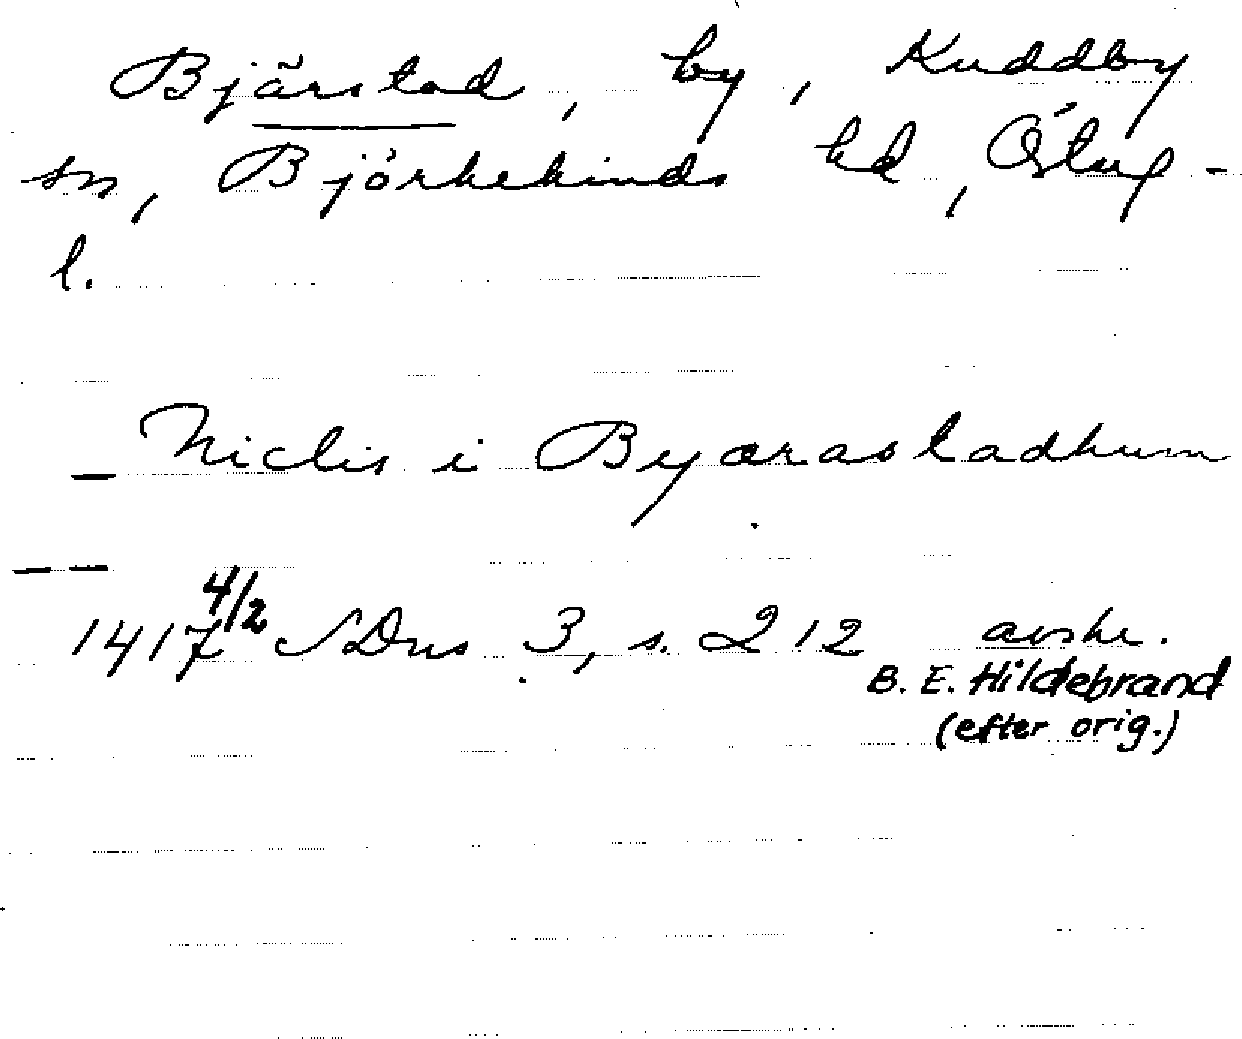 Bjärstad, by, Kuddby
sn, Björkekinds hd, Östg-
l.
— Niclis i Byærastadhum
— —
1417 4/2 SDns 3, s. 212 avskr.
B. E. Hildebrand
(efter orig.)